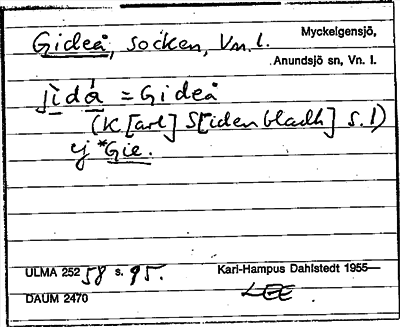 Gideå, socken, Vn. l.
Myckelgensjö,
Anundsjö sn, Vn. l.
jìdá = Gideå
(K[arl] S[idenbladh] s. 1)
ej *Gie.
ULMA 252 58 s. 95.
Karl-Hampus Dahlstedt 1955—
DAUM 2470
LEE.